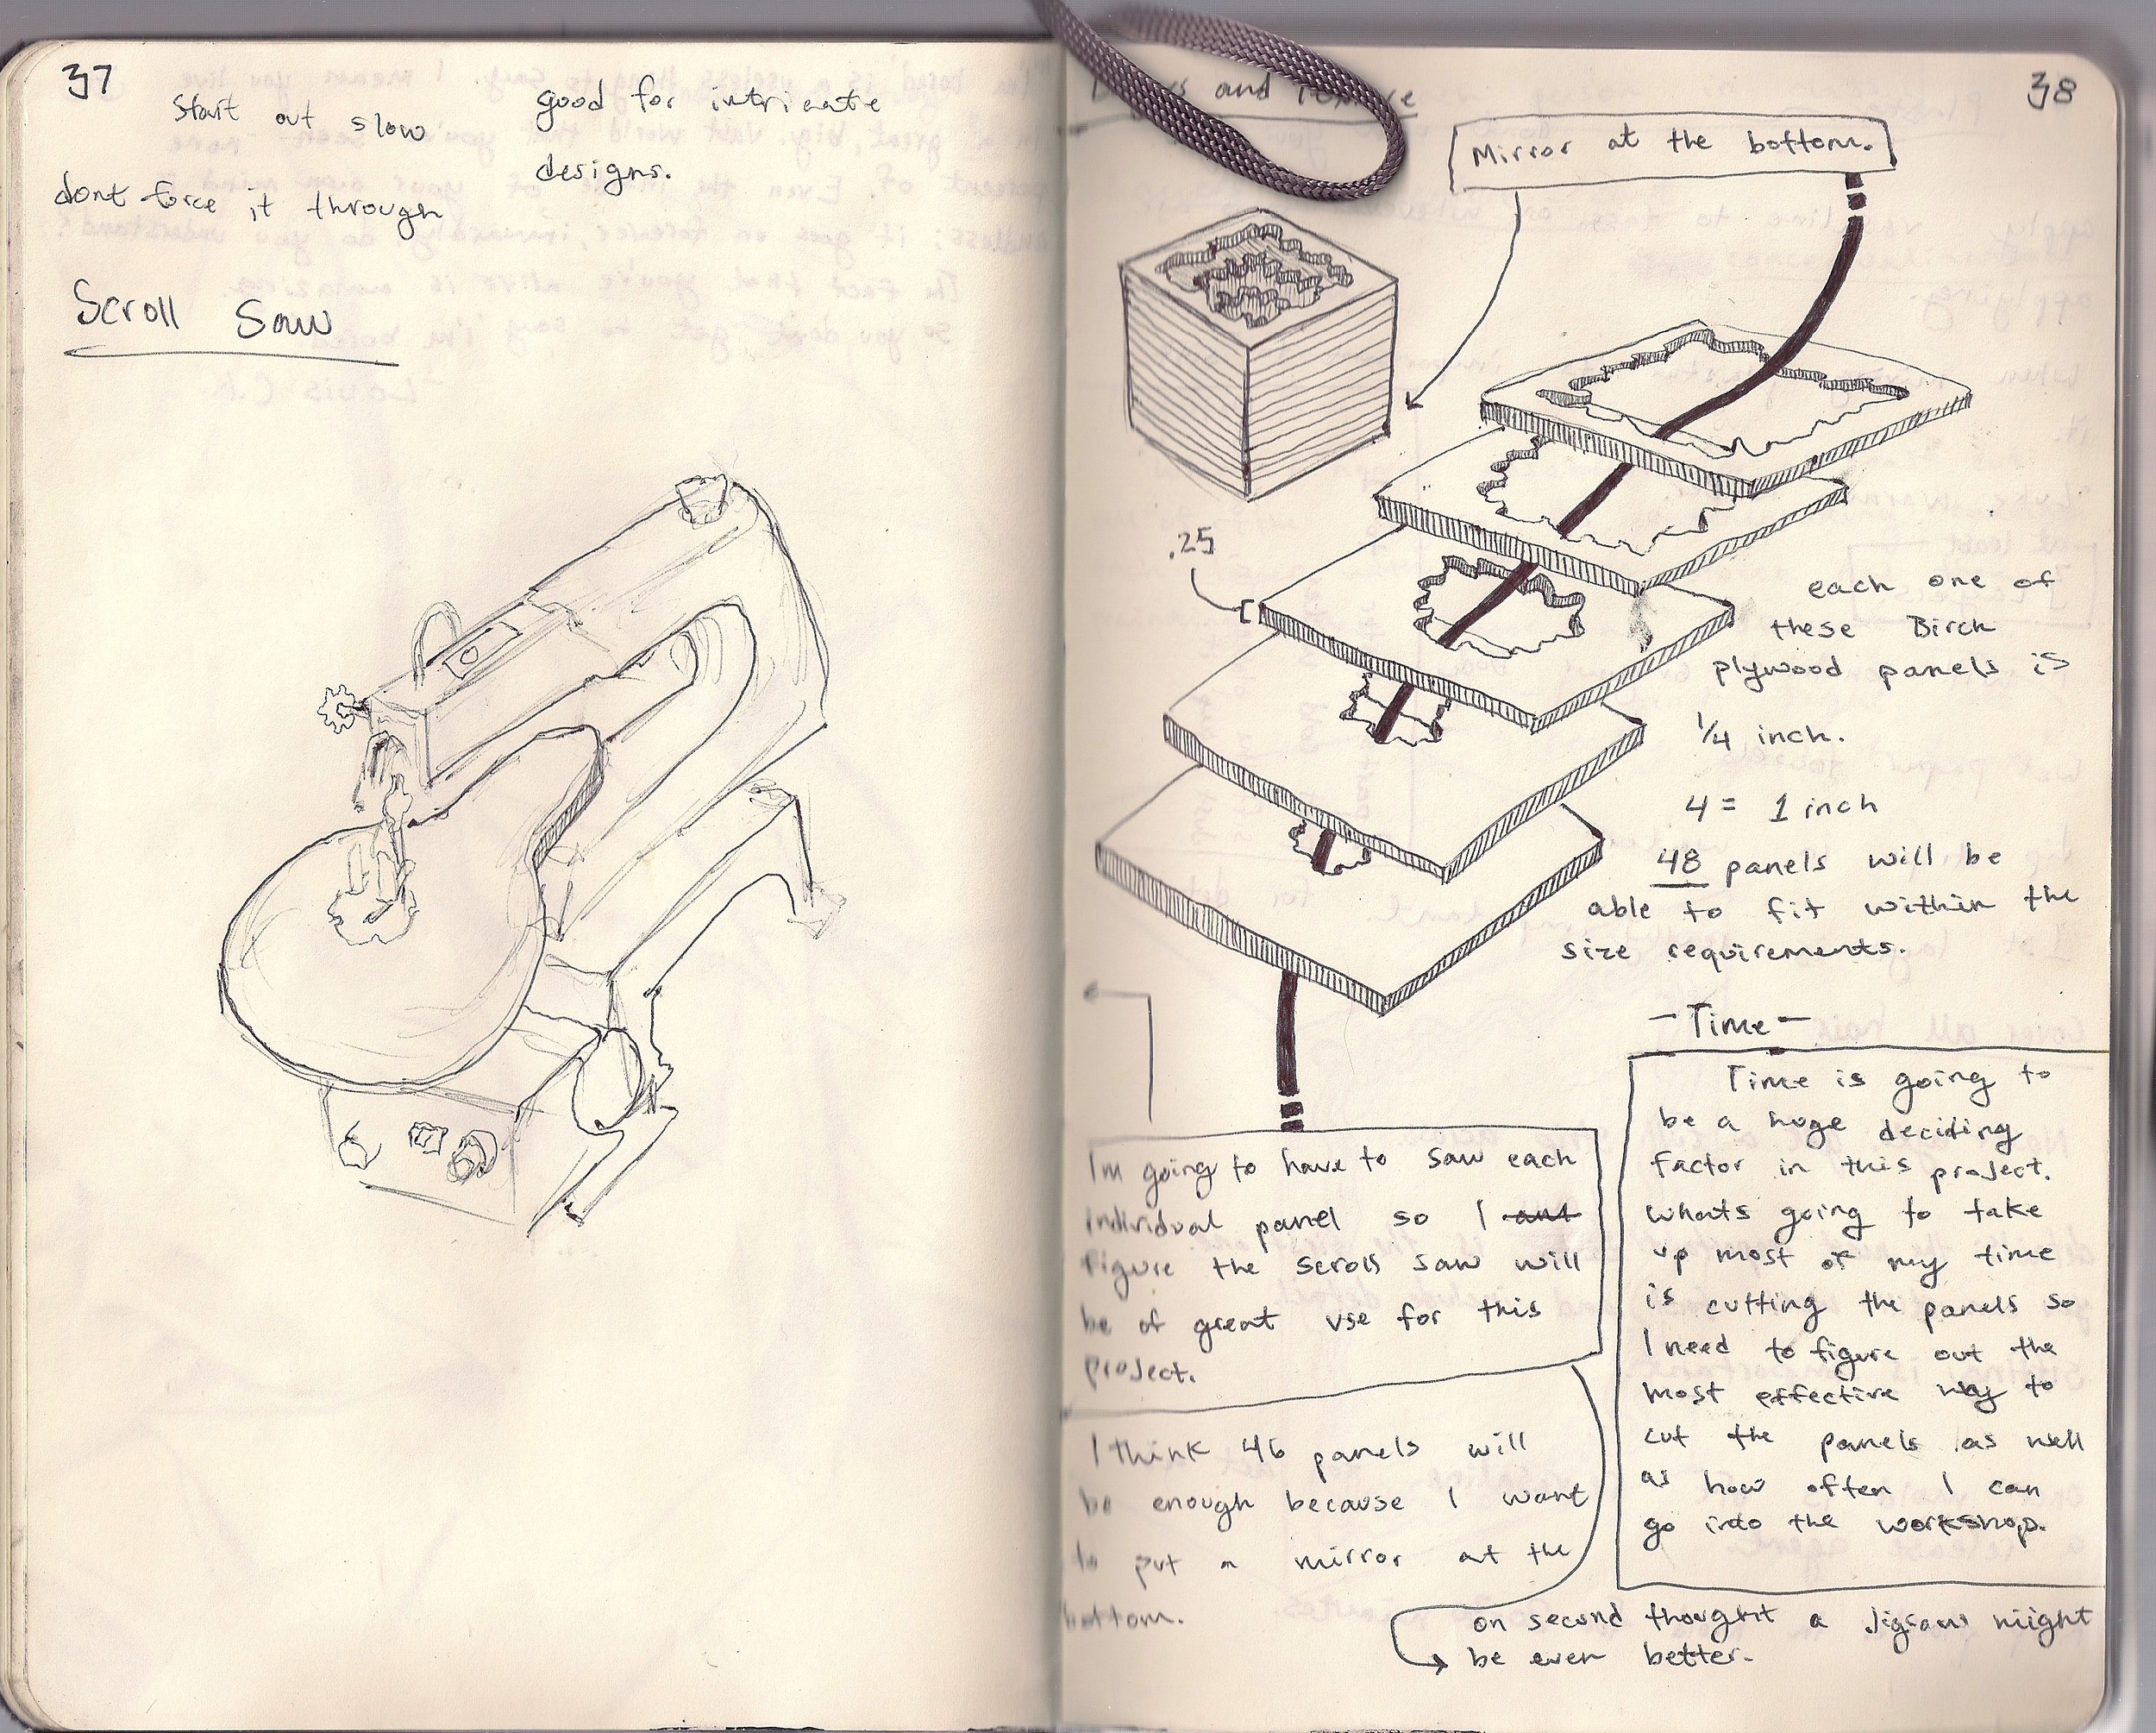 37
Start out slow
dont force it through
good for intricate
designs.
Scroll Saw
38
and
Mirror at the bottom.
.25
each one of
these Birch
plywood panels is
1/4 inch.
4 = 1 inch
48 panels will be
able to fit within the
size requirements.
- Time -
Time is going to
be a huge deciding
factor in this project.
whats going to take
up most of my time
is cutting the panels so
I need to figure out the
most effective way to
cut the panels as well
as how often I can
go into the workshop.
Im going to have to saw each
individual panel so I
figure the scroll saw will
be of great use for this
project.
I think 46 panels will
be enough because I want
to put a mirror at the
bottom.
on second thought a Jigsaw might
be even better.